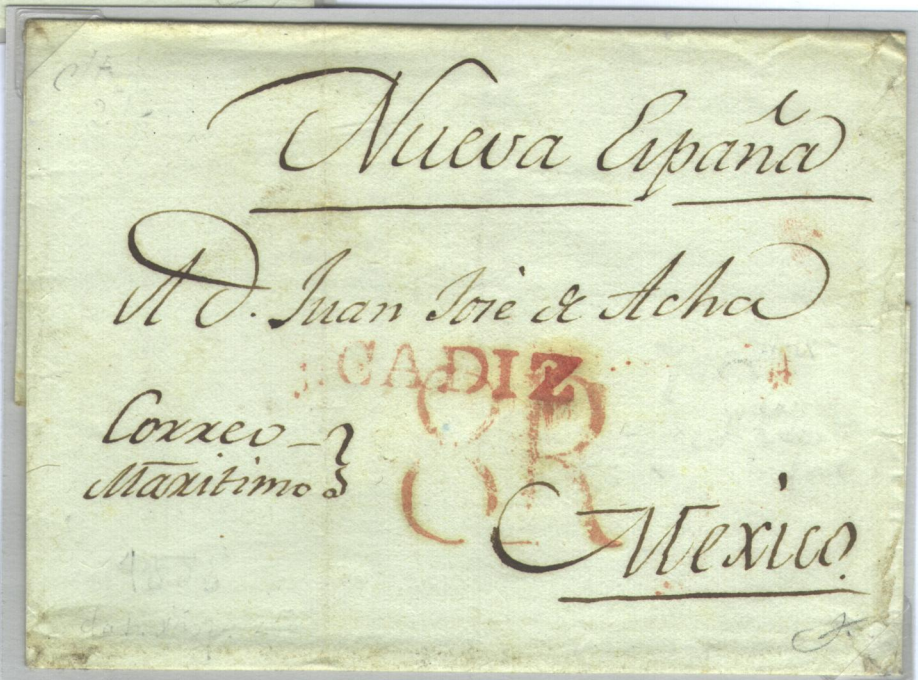 Nueva España
A D. Juan José de Acha
CADIZ
Correo
Maritimo
8R
Mexico